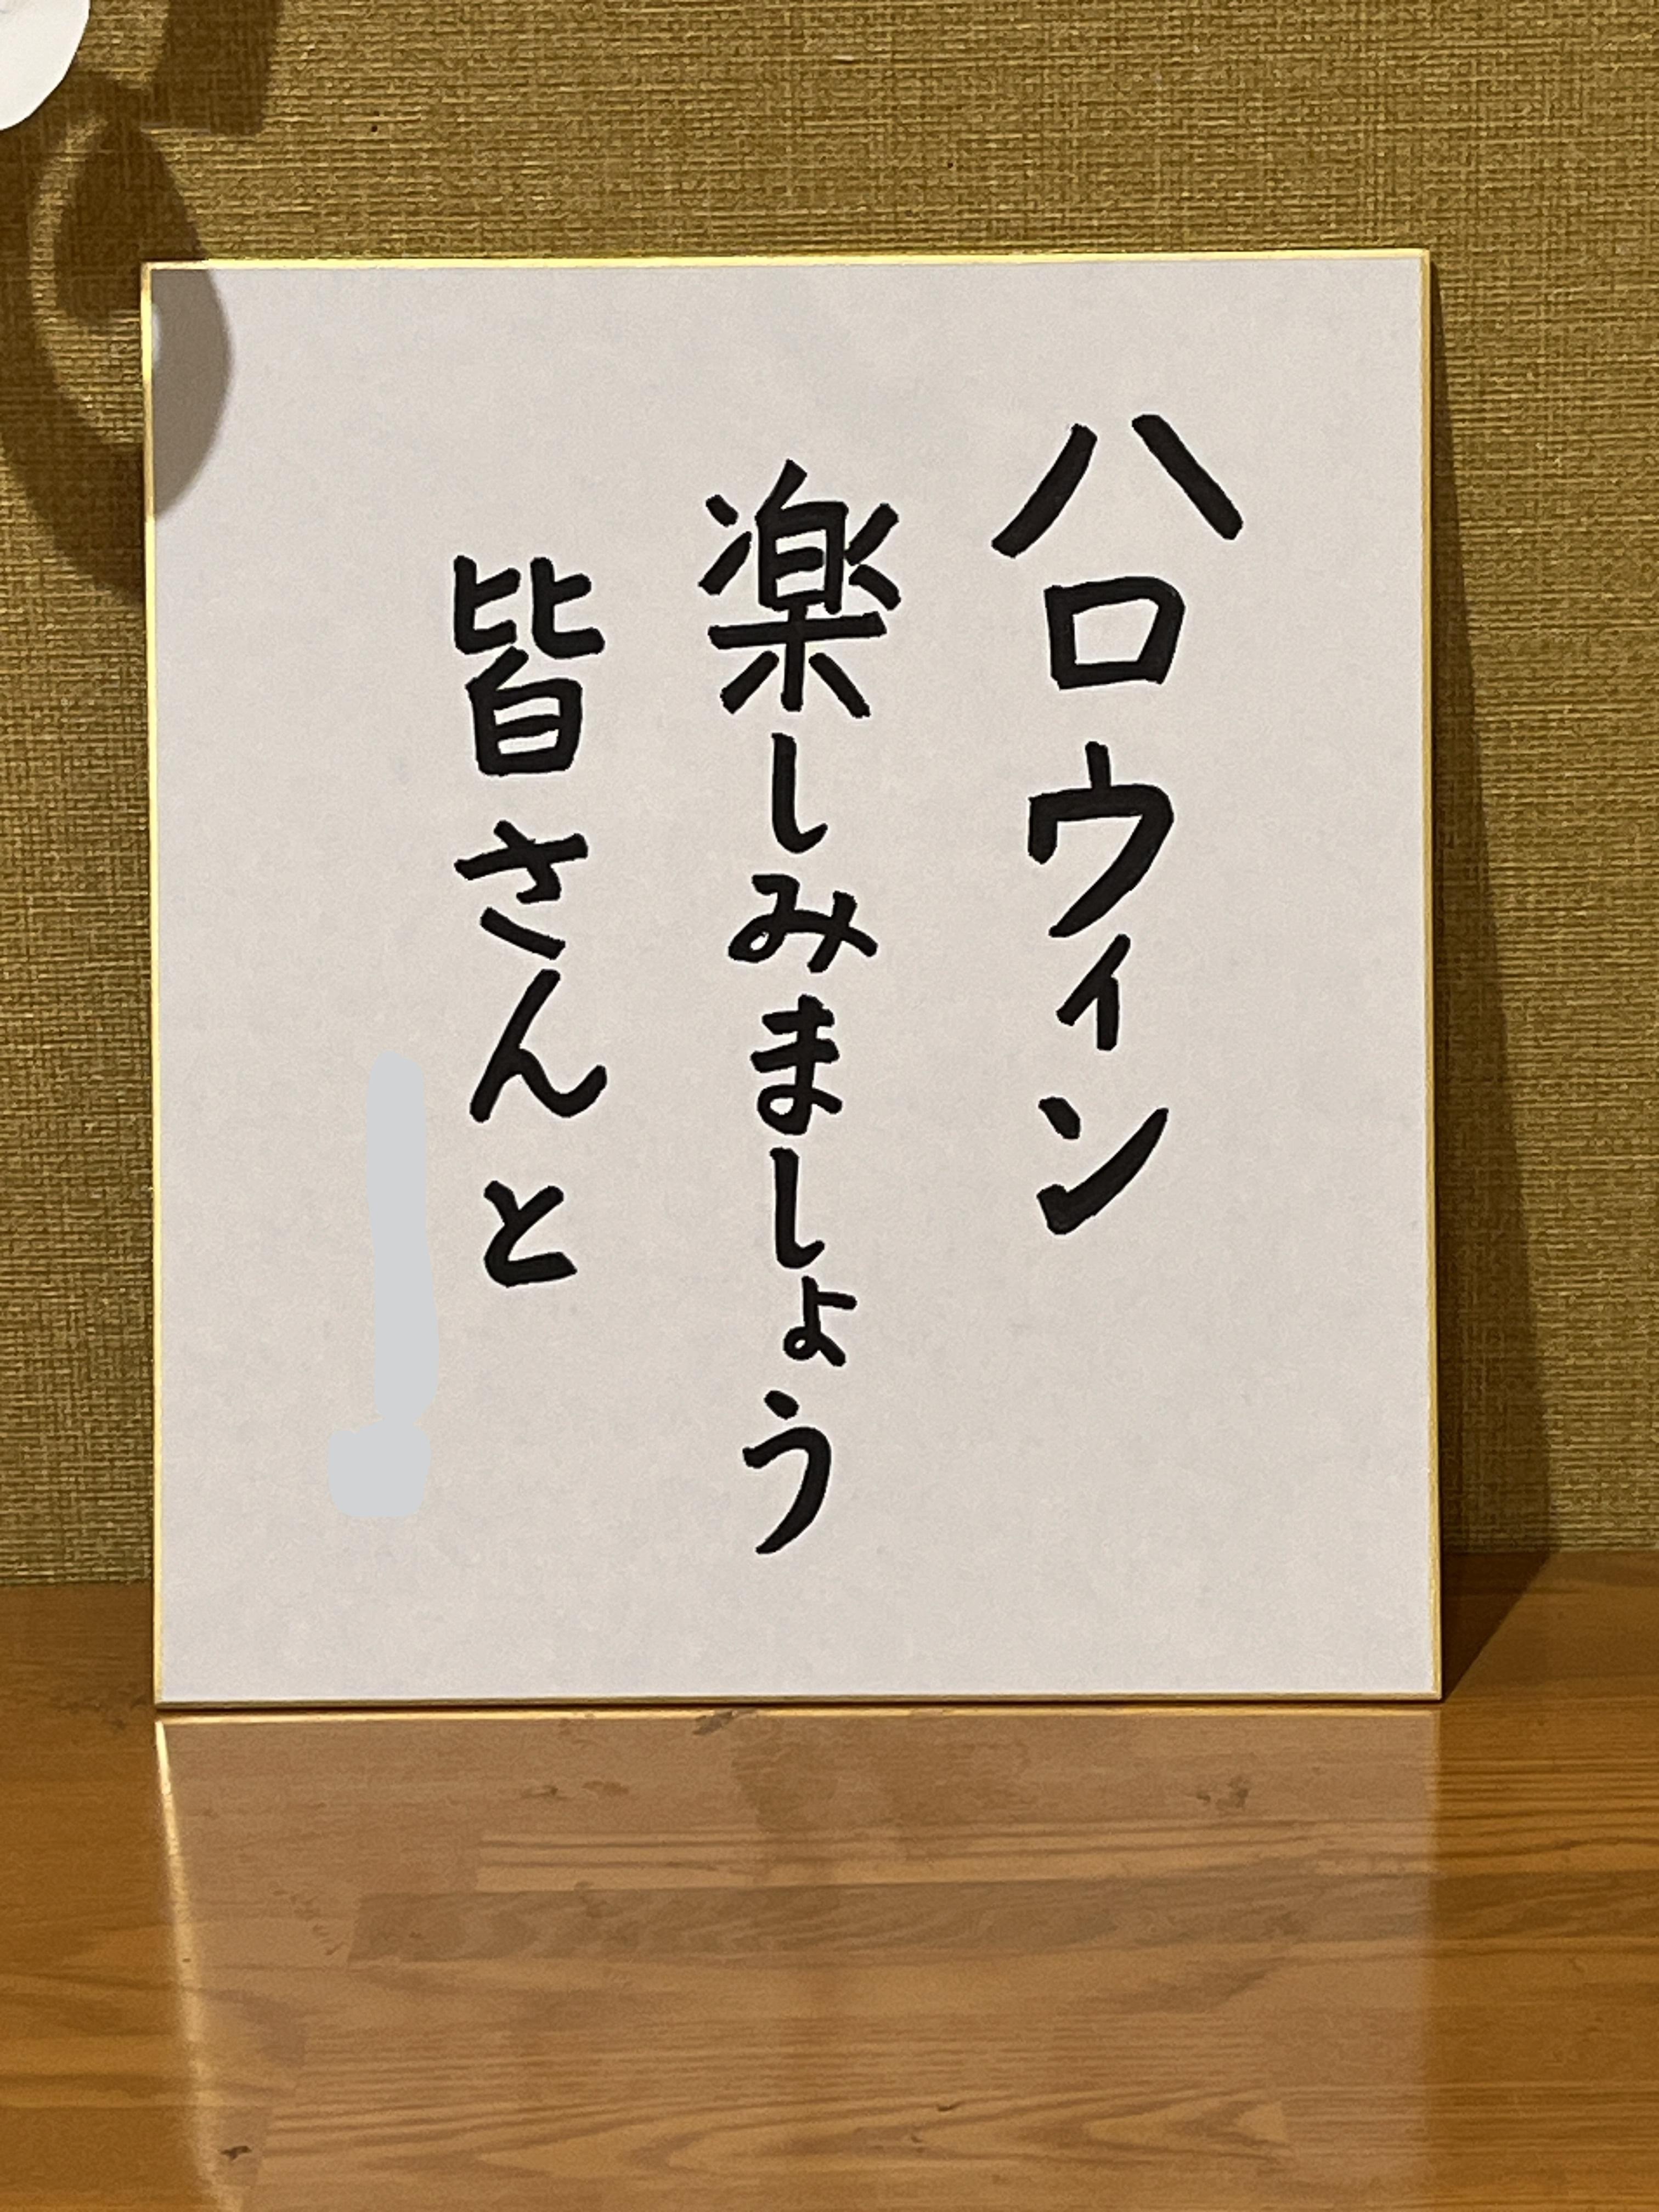 ハロウィン
楽しみましょう
皆さんと